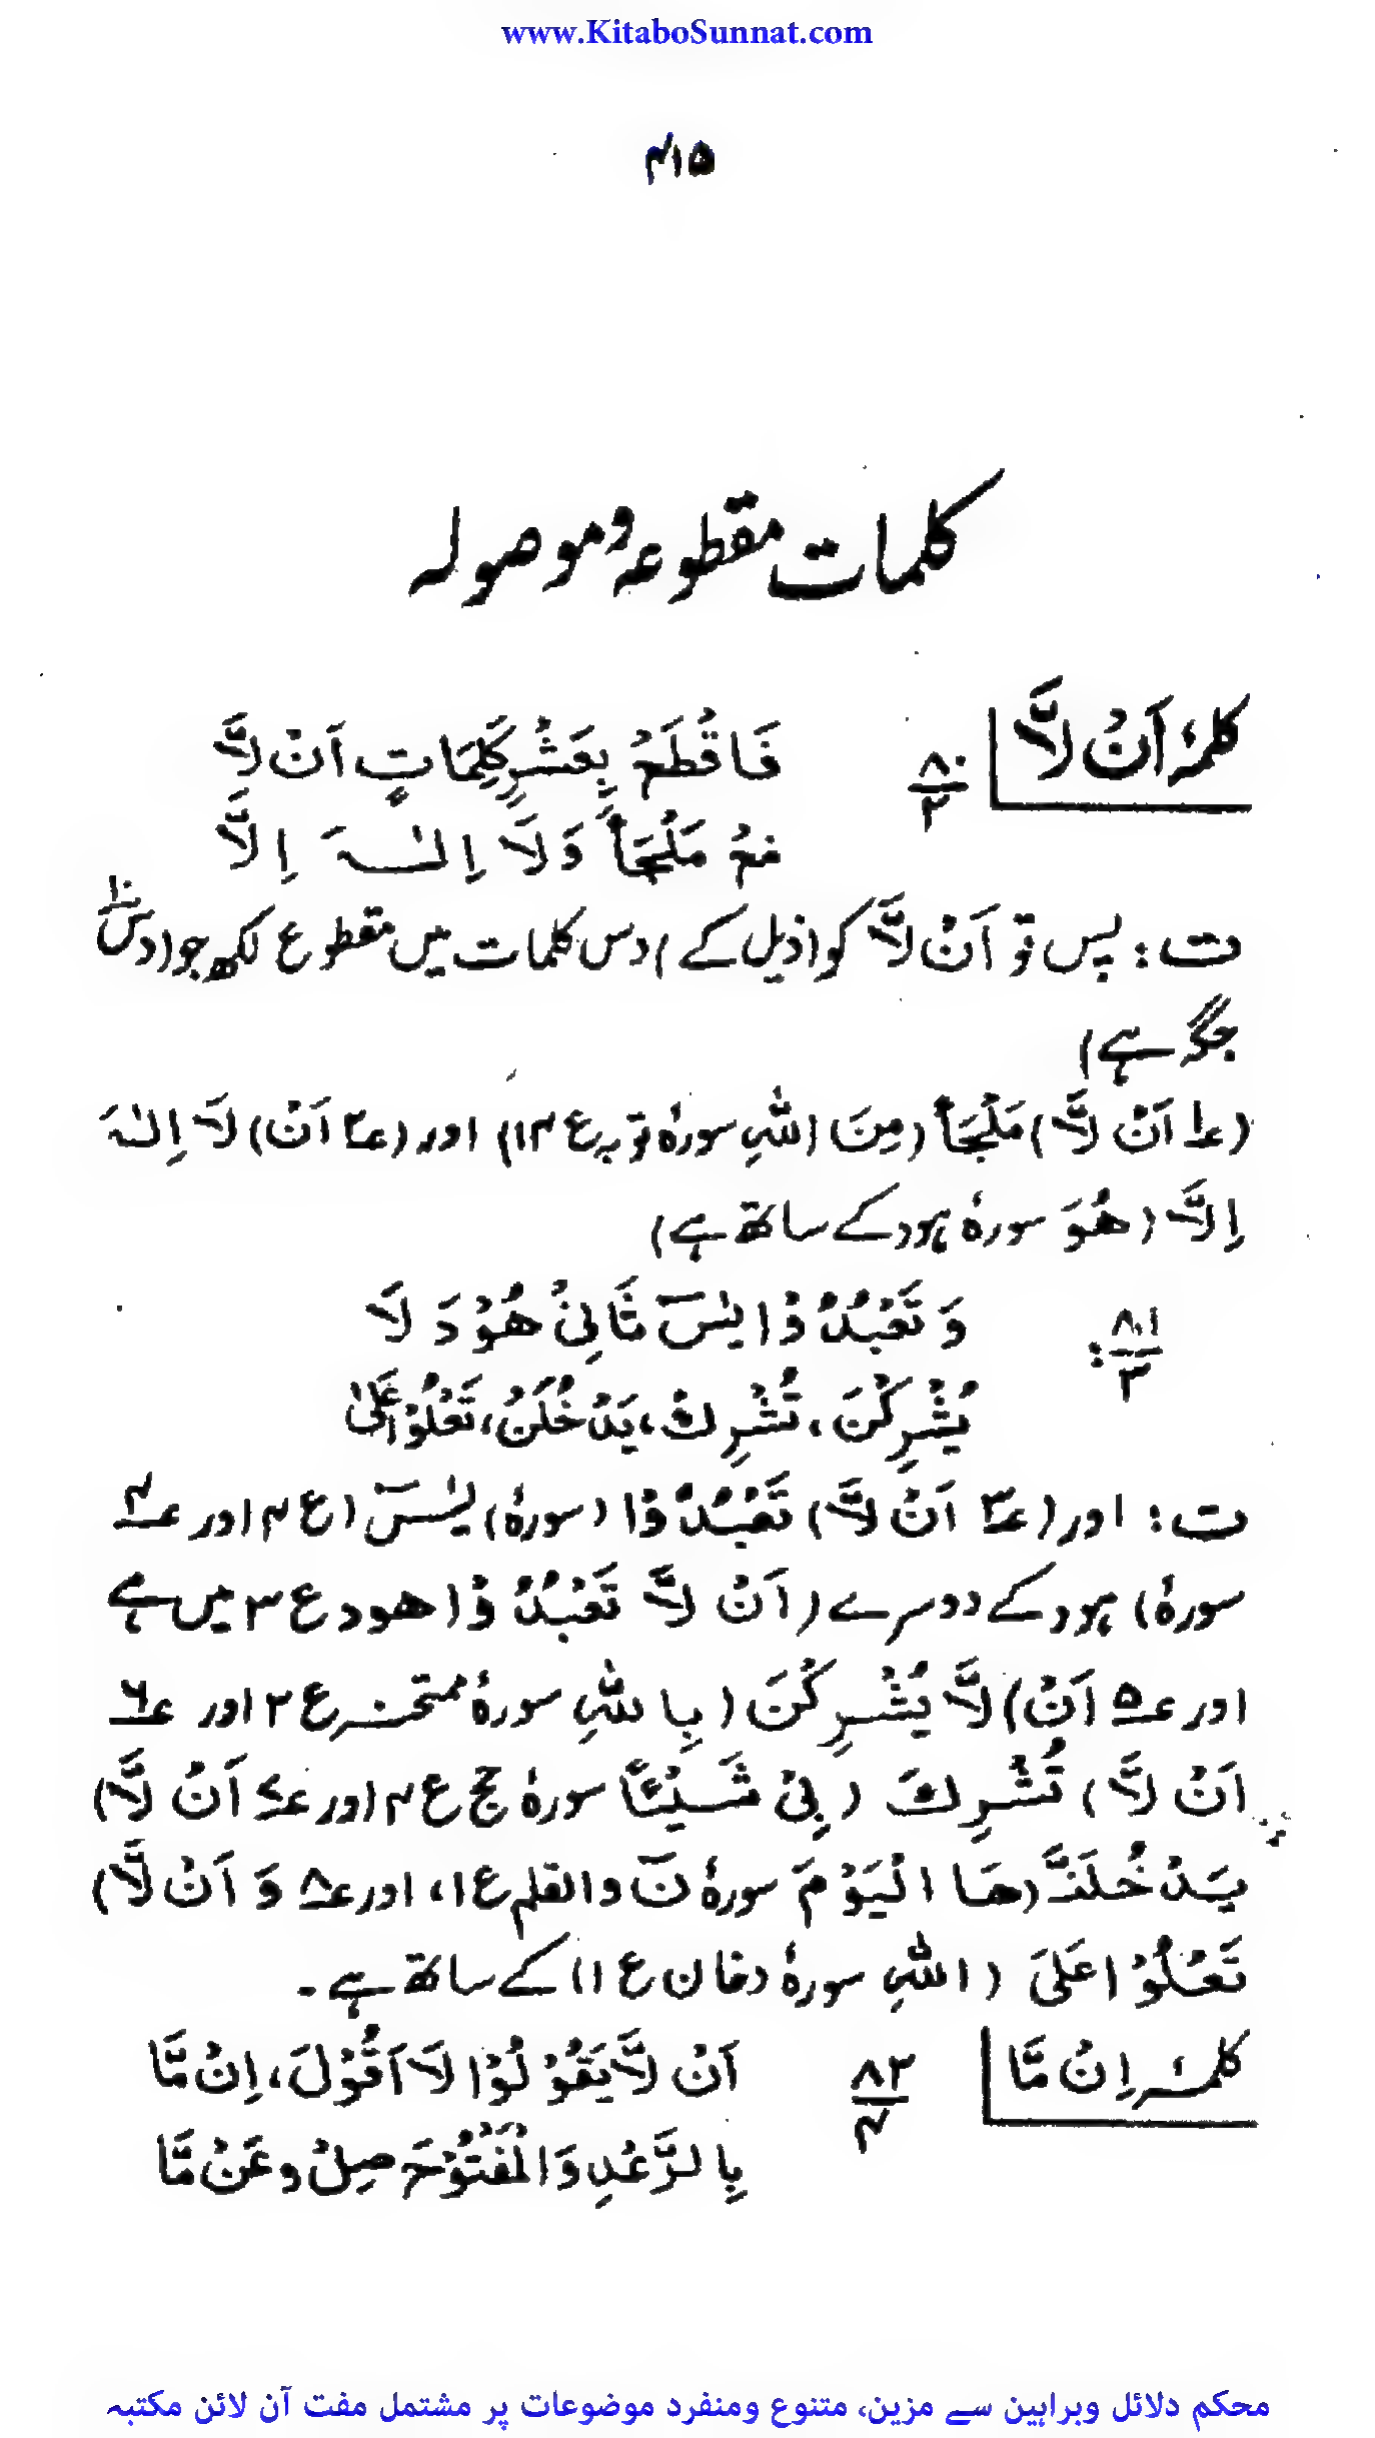 www.KitaboSunnat.com
۴۱۵
کلمات مقطوعہ و موصولہ
کلمۂ اَنْ لَّا
۸۰/۲ فَاقْطَعْ بِعَشْرِ كَلِمَاتٍ اَنْ لَّا
مَعْ مَلْجَأً وَلَا اِلٰـهَ اِلَّا
ت : پس تو اَنْ لَّا کو (ذیل کے) دس کلمات میں مقطوع لکھ جو (دس ۱۰
جگہ ہے)
(۱؎ اَنْ لَّا) مَلْجَأَ (مِنَ اللهِ سورۂ توبہ ع ۱۴) اور (۲؎ اَنْ) لَّا اِلٰہَ
اِلَّا (هُوَ سورۂ ہود کے ساتھ ہے)
۸۱/۳ : وَ تَعْبُدُوْا يٰسٓ ثَانِيْ هُوْدَ لَا
يُشْرِكْنَ، تُشْرِكْ، يَدْخُلَنْ، تَعْلُوْا عَلٰى
ت : اور (۳؎ اَنْ لَّا) تَعْبُدُوْا (سورۂ) یٰسٓ (ع ۴ اور ۴؎
سورۂ) ہود کے دوسرے (اَنْ لَّا تَعْبُدُوْا هود ع ۳ میں ہے
اور ۵؎ اَنْ) لَّا يُشْرِكْنَ (بِاللهِ سورۂ ممتحنہ ع ۲ اور ۶؎
اَنْ لَّا) تُشْرِكْ (بِيْ شَيْئًا سورۂ حج ع ۴ اور ۷؎ اَنْ لَّا)
يَدْخُلَنَّ (هَا الْيَوْمَ سورۂ نٓ والقلم ع ۱، اور ۸؎ وَ اَنْ لَّا)
تَعْلُوْا عَلَى (اللهِ سورۂ دخان ع ۱) کے ساتھ ہے۔
کلمۂ اِنْ مَّا
۸۲/۴ اَنْ لَّا يَقُوْلُوْا لَا اَقُوْلَ، اِنْ مَّا
بِالرَّعْدِ وَالْمَفْتُوْحَ صِلْ وَعَنْ مَّا
محکم دلائل وبراہین سے مزین، متنوع ومنفرد موضوعات پر مشتمل مفت آن لائن مکتبہ